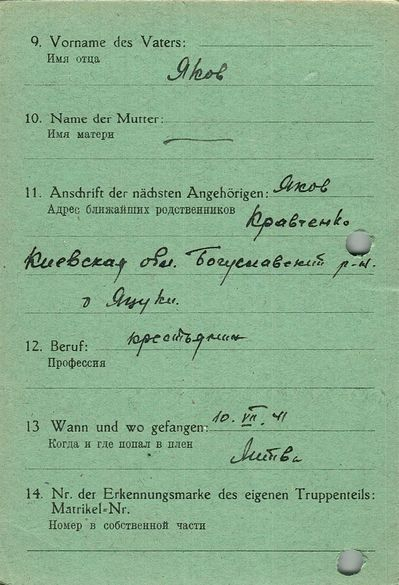 9. Vorname des Vaters:
Имя отца
Яков
10. Name der Mutter:
Имя матери
11. Anschrift der nächsten Angehörigen: Яков
Адрес ближайших родственников Кравченко
Киевская обл. Богуславский р-н.
Яцуки.
12. Beruf: крестьянин
Профессия
13 Wann und wo gefangen: 10. VII. 41
Когда и где попал в плен
Литва
14. Nr. der Erkennungsmarke des eigenen Truppenteils:
Matrikel-Nr.
Номер в собственной части